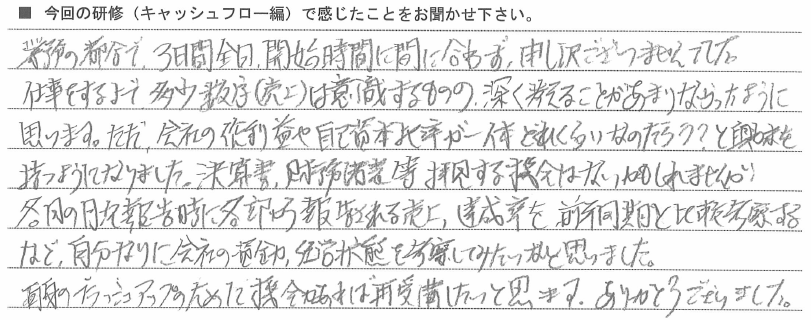 ■ 今回の研修(キャッシュフロー編)で感じたことをお聞かせ下さい。
業務の都合で、3日間全日、開始時間に間に合わず、申し訳ございませんでした。
仕事をする上で多少数字(売上)は意識するものの、深く考えることがあまりなかったように
思います。ただ、会社の経利益や自己資本比率が一体どれくらいなのだろう?と興味を
持つようになりました。決算書、財務諸表等拝見する機会はないかもしれませんが
各月の月次報告時に各部から報告される売上、達成率を前年同期と比較考察する
など、自分なりに会社の資金力、経営状態を考察してみたいなと思いました。
自身のブラッシュアップのためにも機会があれば再受講したいと思います。ありがとうございました。